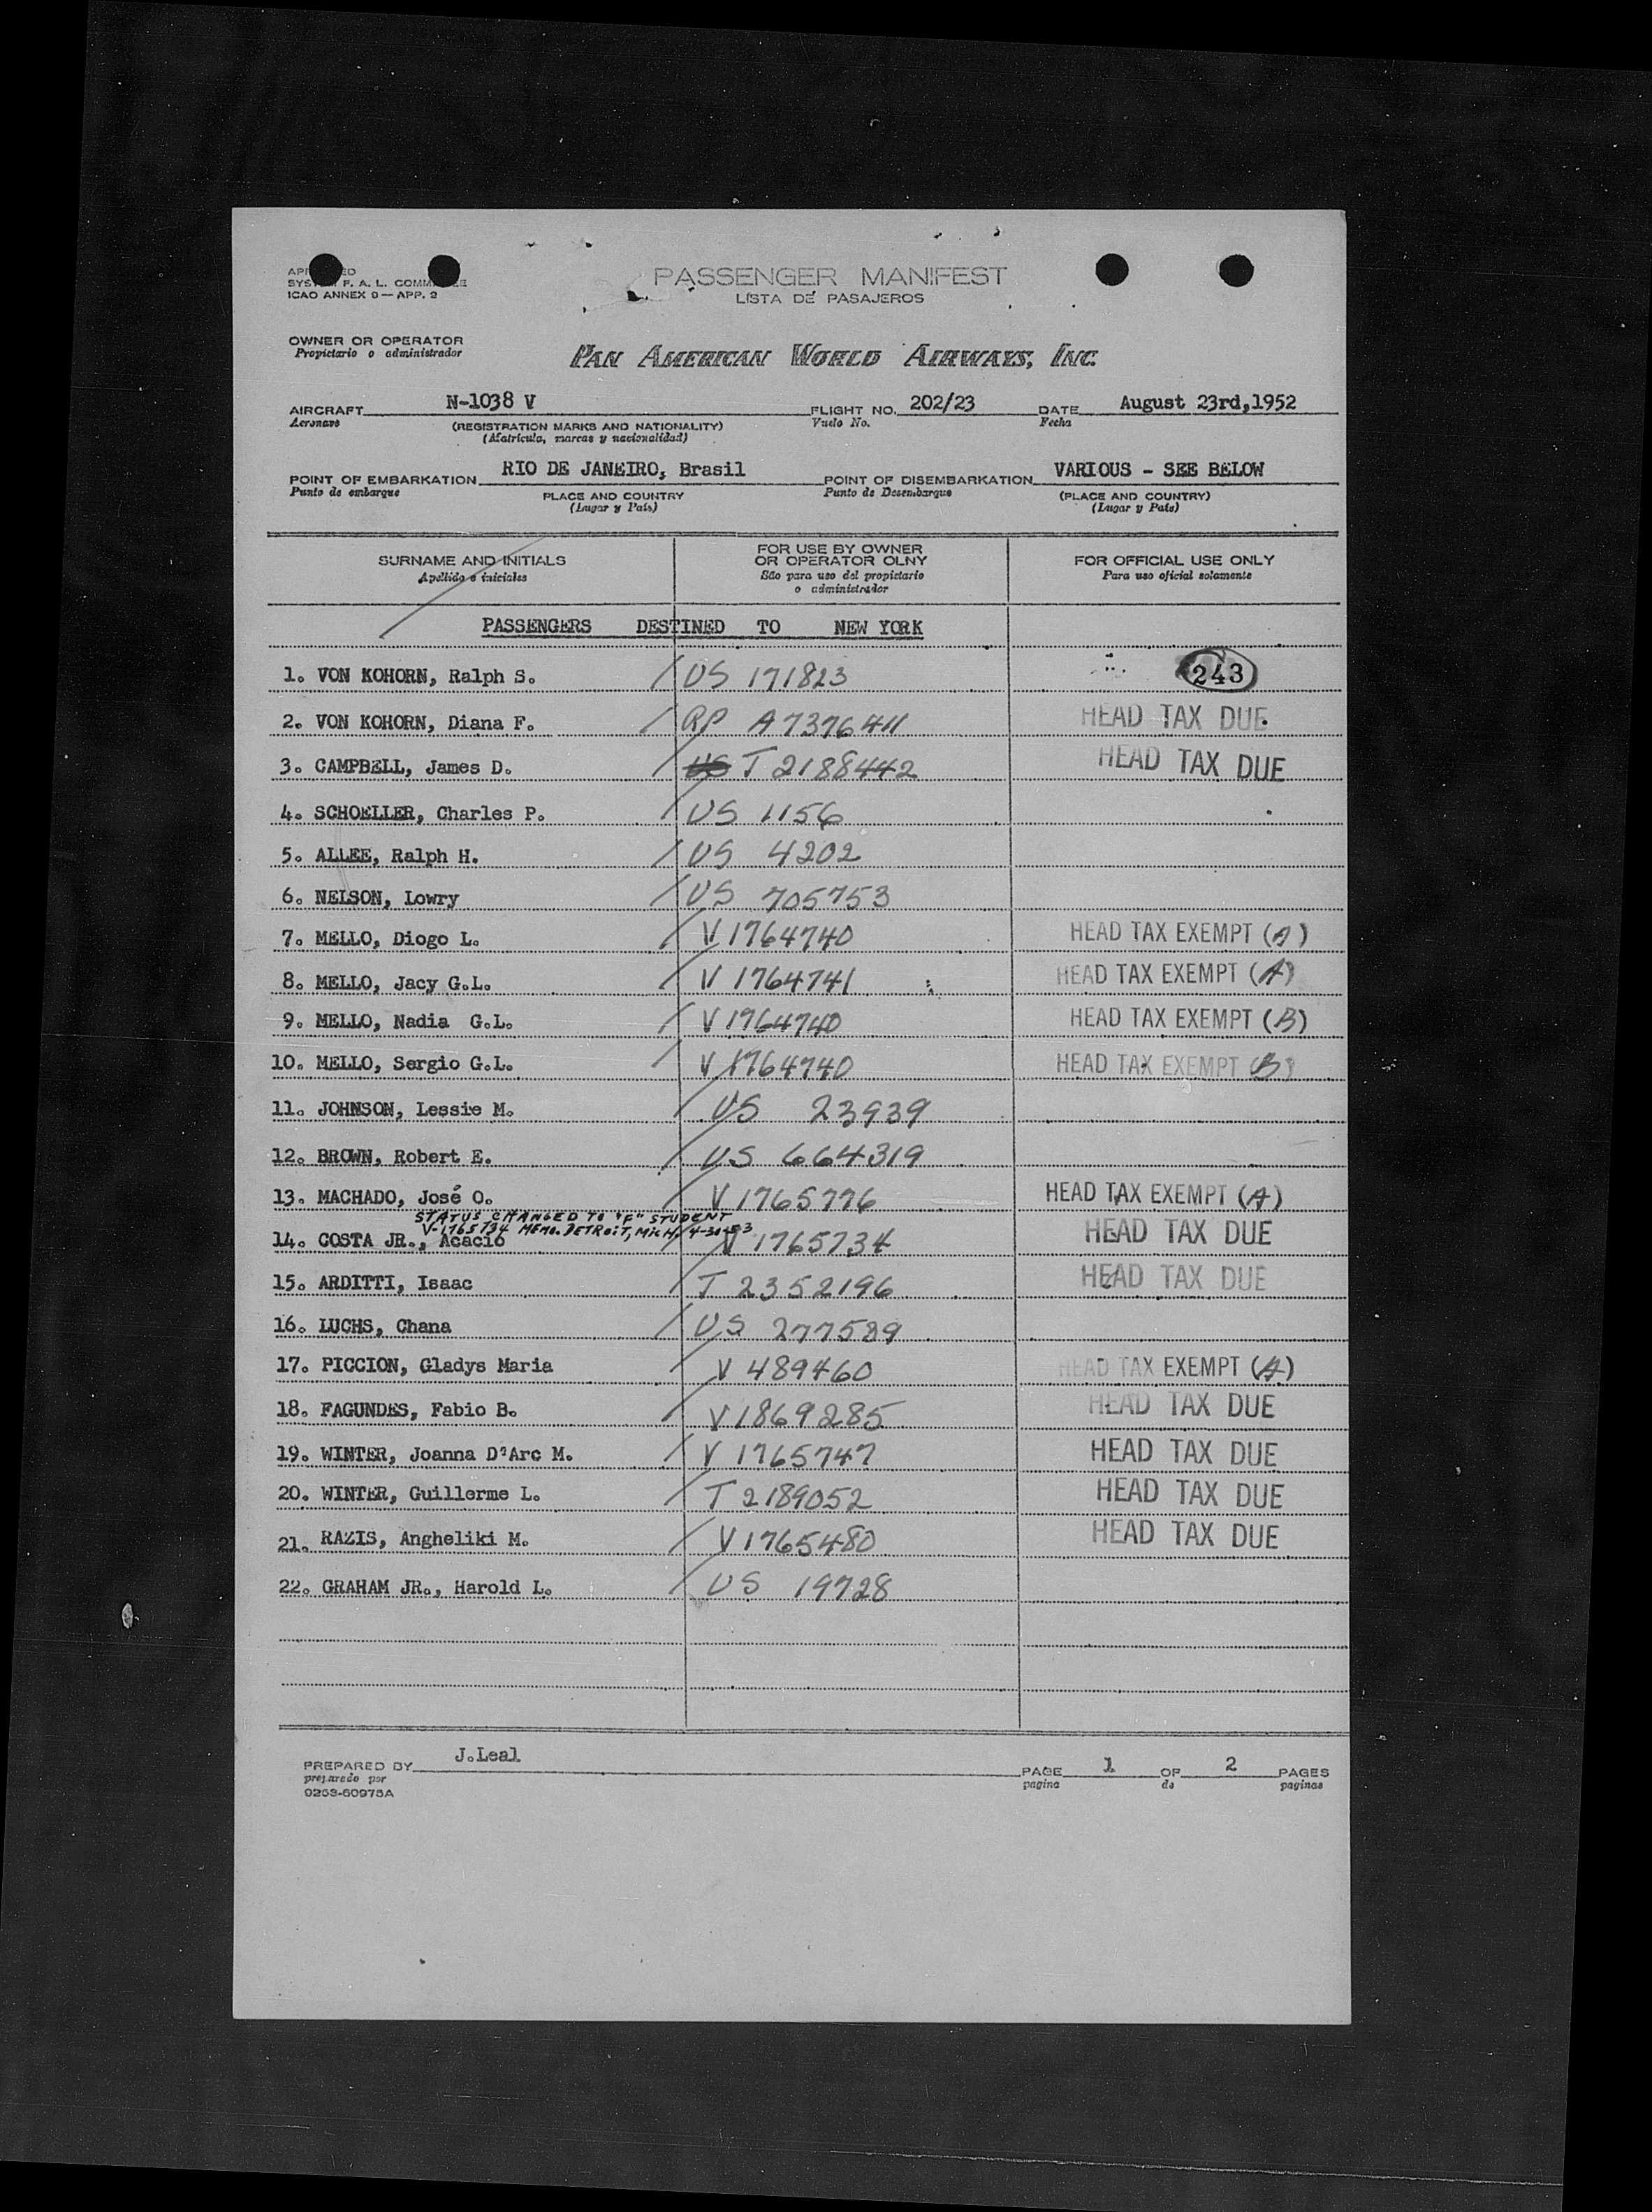 PASSENGER MANIFEST
LISTA DE PASAJEROS
ICAO ANNEX 9 — APP. 2
OWNER OR OPERATOR
Propietario o administrador
PAN AMERICAN WORLD AIRWAYS, INC.
AIRCRAFT N-1038 V FLIGHT NO. 202/23 DATE August 23rd, 1952
Aeronave Vuelo No. Fecha
(REGISTRATION MARKS AND NATIONALITY)
(Matricula, marcas y nacionalidad)
POINT OF EMBARKATION RIO DE JANEIRO, Brasil POINT OF DISEMBARKATION VARIOUS - SEE BELOW
Punto de embarque PLACE AND COUNTRY Punto de Desembarque (PLACE AND COUNTRY)
(Lugar y País) (Lugar y País)
SURNAME AND INITIALS FOR USE BY OWNER OR OPERATOR OLNY FOR OFFICIAL USE ONLY
Apellido e iniciales São para uso del propietario o administrador Para uso oficial solamente
PASSENGERS DESTINED TO NEW YORK
1. VON KOHORN, Ralph S. / US 171823 243
2. VON KOHORN, Diana F. / RP A7376411 HEAD TAX DUE
3. CAMPBELL, James D. / US T 2188442 HEAD TAX DUE
4. SCHOELLER, Charles P. / US 1156
5. ALLEE, Ralph H. / US 4202
6. NELSON, Lowry / US 705753
7. MELLO, Diogo L. / V 1764740 HEAD TAX EXEMPT (A)
8. MELLO, Jacy G.L. / V 1764741 HEAD TAX EXEMPT (A)
9. MELLO, Nadia G.L. / V 1764740 HEAD TAX EXEMPT (B)
10. MELLO, Sergio G.L. / V 1764740 HEAD TAX EXEMPT (B)
11. JOHNSON, Lessie M. / US 23939
12. BROWN, Robert E. / US 664319
13. MACHADO, José O. / V 1765776 HEAD TAX EXEMPT (A)
STATUS CHANGED TO "F" STUDENT
V-1765734 MEMO. DETROIT, MICH. 4-30-53
14. COSTA JR., Acacio V 1765734 HEAD TAX DUE
15. ARDITTI, Isaac / T 2352196 HEAD TAX DUE
16. LUCHS, Chana / US 277589
17. PICCION, Gladys Maria / V 489460 HEAD TAX EXEMPT (A)
18. FAGUNDES, Fabio B. / V 1869285 HEAD TAX DUE
19. WINTER, Joanna D'Arc M. / V 1765747 HEAD TAX DUE
20. WINTER, Guillerme L. / T 2189052 HEAD TAX DUE
21. RAZIS, Angheliki M. / V 1765480 HEAD TAX DUE
22. GRAHAM JR., Harold L. / US 19728
PREPARED BY J.Leal PAGE 1 OF 2 PAGES
preparado por pagina de paginas
0253-60975A